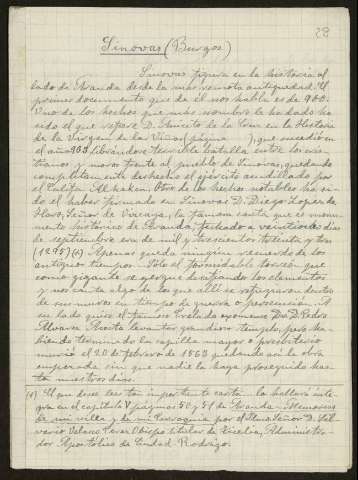 29
Sinovas (Burgos)
Sinovas figura en la historia al
lado de Aranda desde la más remota antigüedad. El
primer documento que de él nos habla es de 933.
Uno de los hechos que más nombre le ha dado ha
sido el que refiere D. de la en su Historia
de la Virgen de las Viñas (página ), que sucedió en
el año 933 librándose terrible batalla entre los cris-
tianos y moros frente al pueblo de Sinovas, quedando
completamente deshecho el ejército acaudillado por
el Califa Al-hakem. Otro de los hechos notables ha si-
do el haber firmado en Sinovas D. Diego Lopez de
Haro, Señor de Vizcaya, la famosa carta que es monu-
mento histórico de Aranda, fechada a veintiocho días
de septiembre era de mil y trescientos treinta y tres
(1295) (1) Apenas queda ningún recuerdo de los
antiguos tiempos. Sólo el formidable torreón que
como gigante se yergue desafiando los elementos
y nos canta algo de los que allí se refugiaron dentro
de sus muros en tiempo de guerra o persecución. A
su lado quiso el famoso Prelado oxomense D. D. Pedro
Alvarez Acosta levantar grandioso templo, pero ha-
biendo terminado la capilla mayor o presbiterio
murió el 20 de febrero de 1563 quedando así la obra
empezada sin que nadie la haya proseguido has-
ta nuestros días.
(1) El que desee leer tan importante carta la hallará ínte-
gra en el capítulo V páginas 50 y 51 de Aranda - Memorias
de mi villa y de mi Parroquia por el Iltmo Señor D. Sil-
verio Velasco Perez Obispo titular de , Administra-
dor Apostólico de Ciudad-Rodrigo.